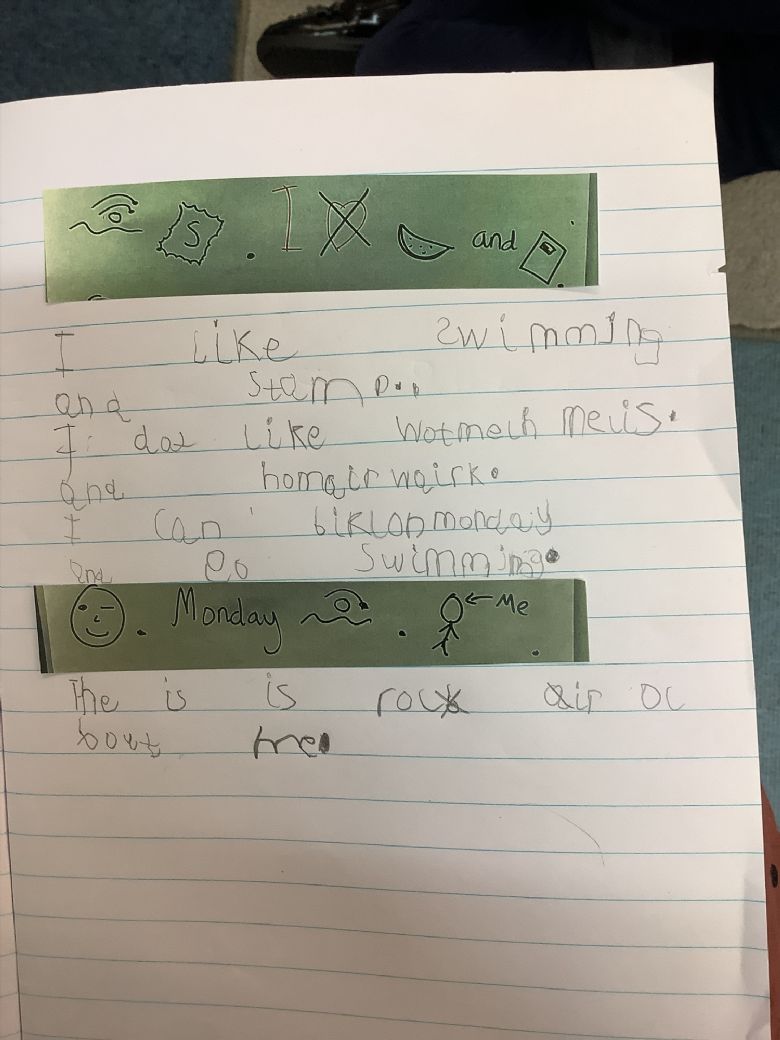 S . I and
I like swimming
and stamp..
I: dat like wotmelh melis.
and homair wairk.
I can biklon monday
and Go swimming.
. Monday . ← Me .
The is is rock air oc
bowt me